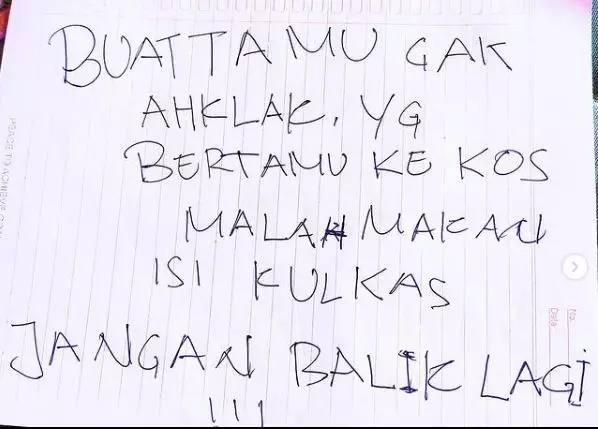 BUAT TAMU GAK
AHKLAK, YG
BERTAMU KE KOS
MALAH MAKAN
ISI KULKAS
JANGAN BALIK LAGI
!!!
No.
Date